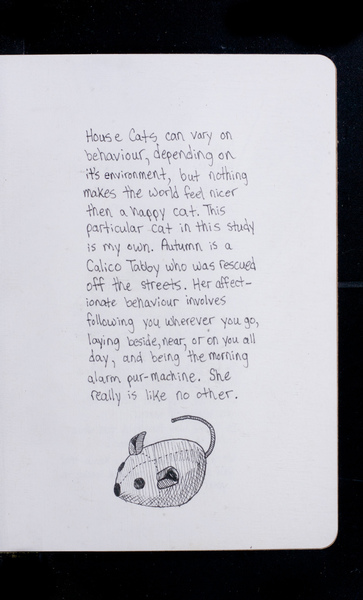 House Cats can vary on
behaviour, depending on
it's environment, but nothing
makes the world feel nicer
then a happy cat. This
particular cat in this study
is my own. Autumn is a
Calico Tabby who was rescued
off the streets. Her affect-
ionate behaviour involves
following you wherever you go,
laying beside, near, or on you all
day, and being the morning
alarm pur-machine. She
really is like no other.